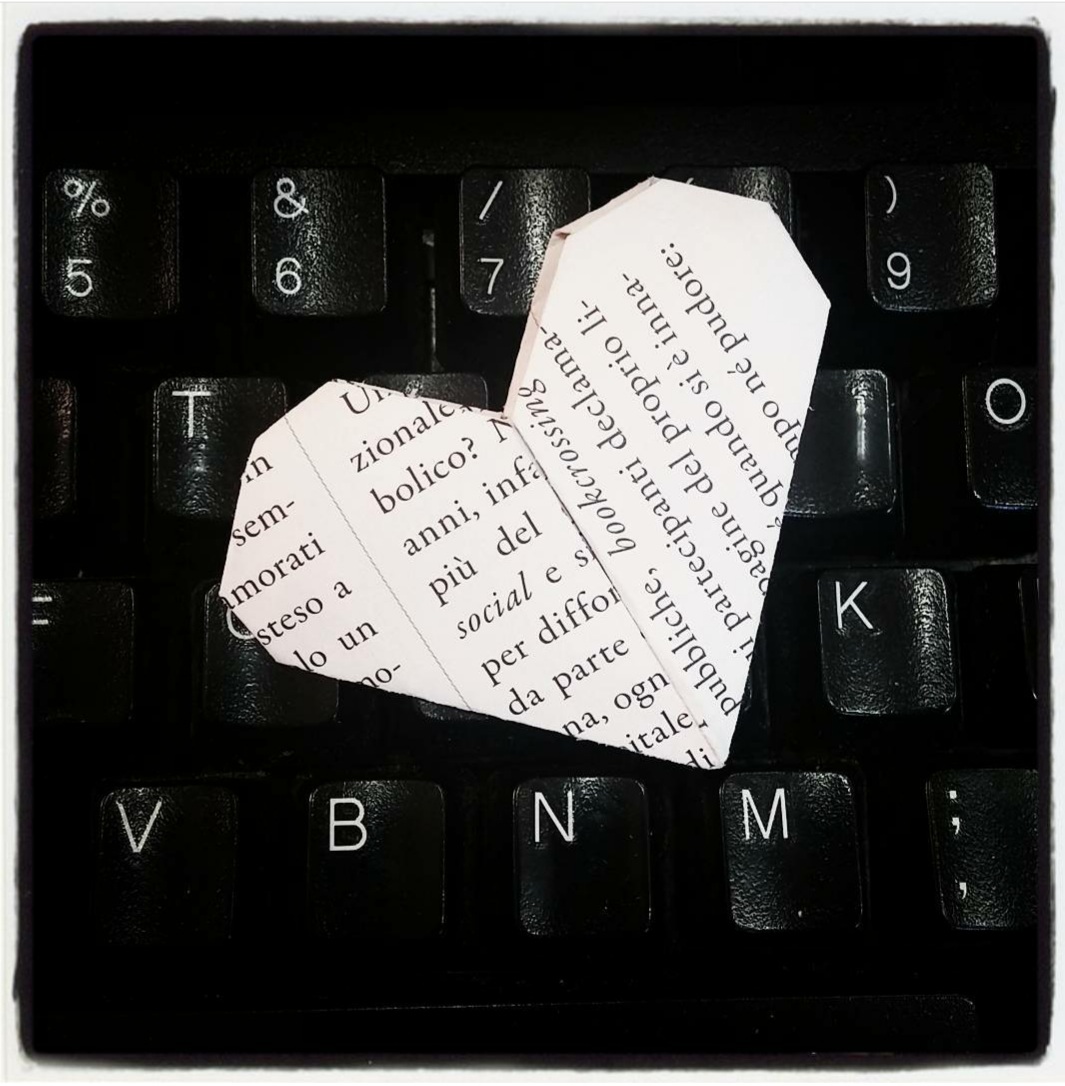 %
5
&
6
/
7
)
9
T
O
K
V
B
N
M
;
,
in
sem-
morati
steso a
lo un
no-
zionale
bolico?
anni,
più del
social e
per
da parte
na, ogn
itale
di
bookcrossing
pubbliche, declama-
partecipanti
pagine del proprio li-
quando si è inna-
né pudore: